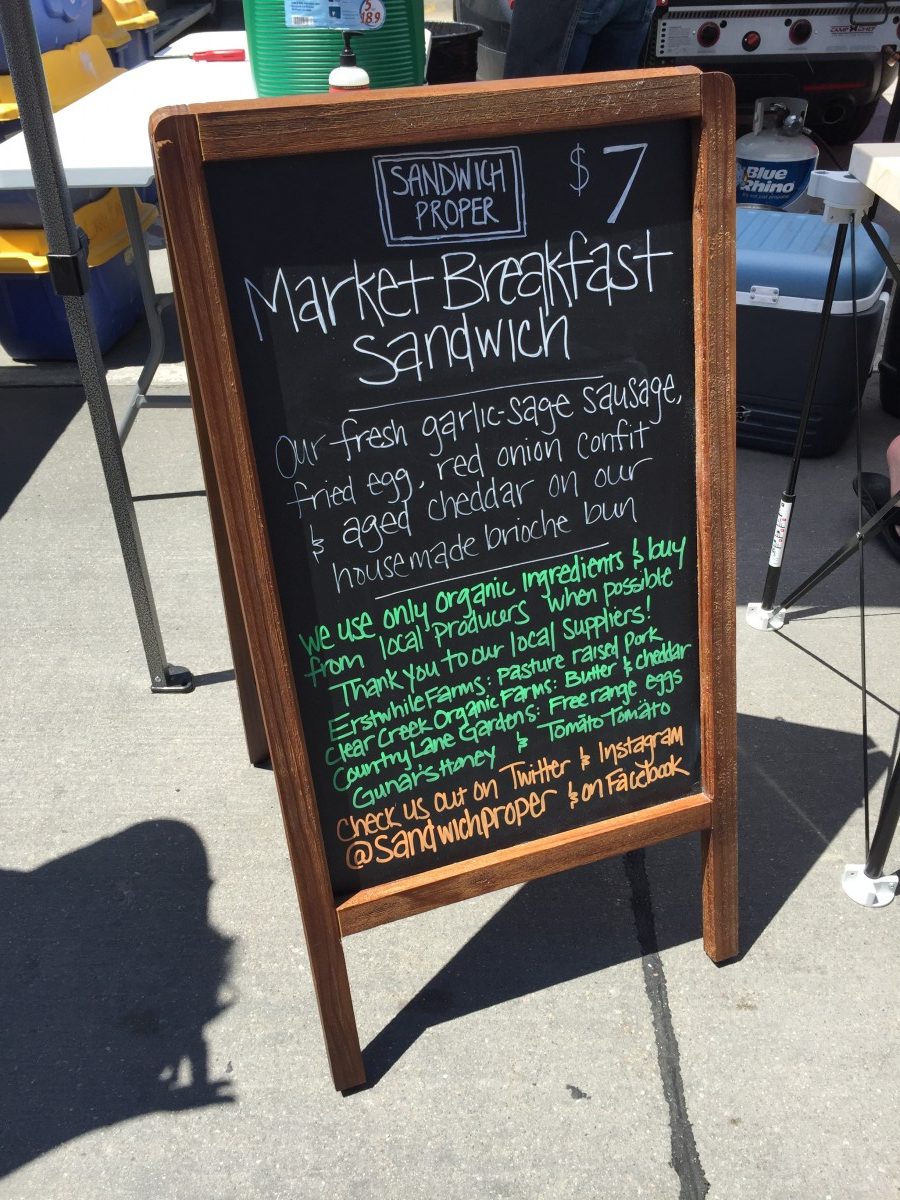 5
18.9
CAMP CHEF
Blue
Rhino
SANDWICH
PROPER
$7
Market Breakfast
Sandwich
Our fresh garlic-sage sausage,
fried egg, red onion confit
& aged cheddar on our
housemade brioche bun
we use only organic ingredients & buy
from local producers when possible
Thank you to our local suppliers!
Erstwhile Farms: Pasture raised Pork
Clear Creek Organic Farms: Butter & cheddar
Country Lane Gardens: Free range eggs
Gunar's Honey & Tomäto Tomäto
Check us out on Twitter & Instagram
@sandwichproper & on Facebook